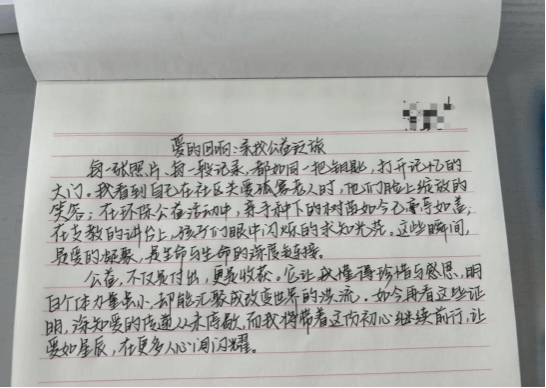 爱的回响:亲我公益之旅
每一张照片、每一段记录,都如同一把钥匙,打开记忆的
大门。我看到自己在社区关爱孤寡老人时,他们脸上绽放的
笑容;在环保公益活动中,亲手种下的树苗如今已亭亭如盖;
在支教的讲台上,孩子们眼中闪烁的求知光芒。这些瞬间,
是爱的凝聚,是生命与生命的深度链接。
公益,不仅是付出,更是收获。它让我懂得珍惜与感恩,明
白个体力量虽小,却能汇聚成改变世界的洪流。如今再看这些证
明,深知爱的传递从未停歇,而我将带着这份初心继续前行,让
爱如星辰,在更多人心间闪耀。